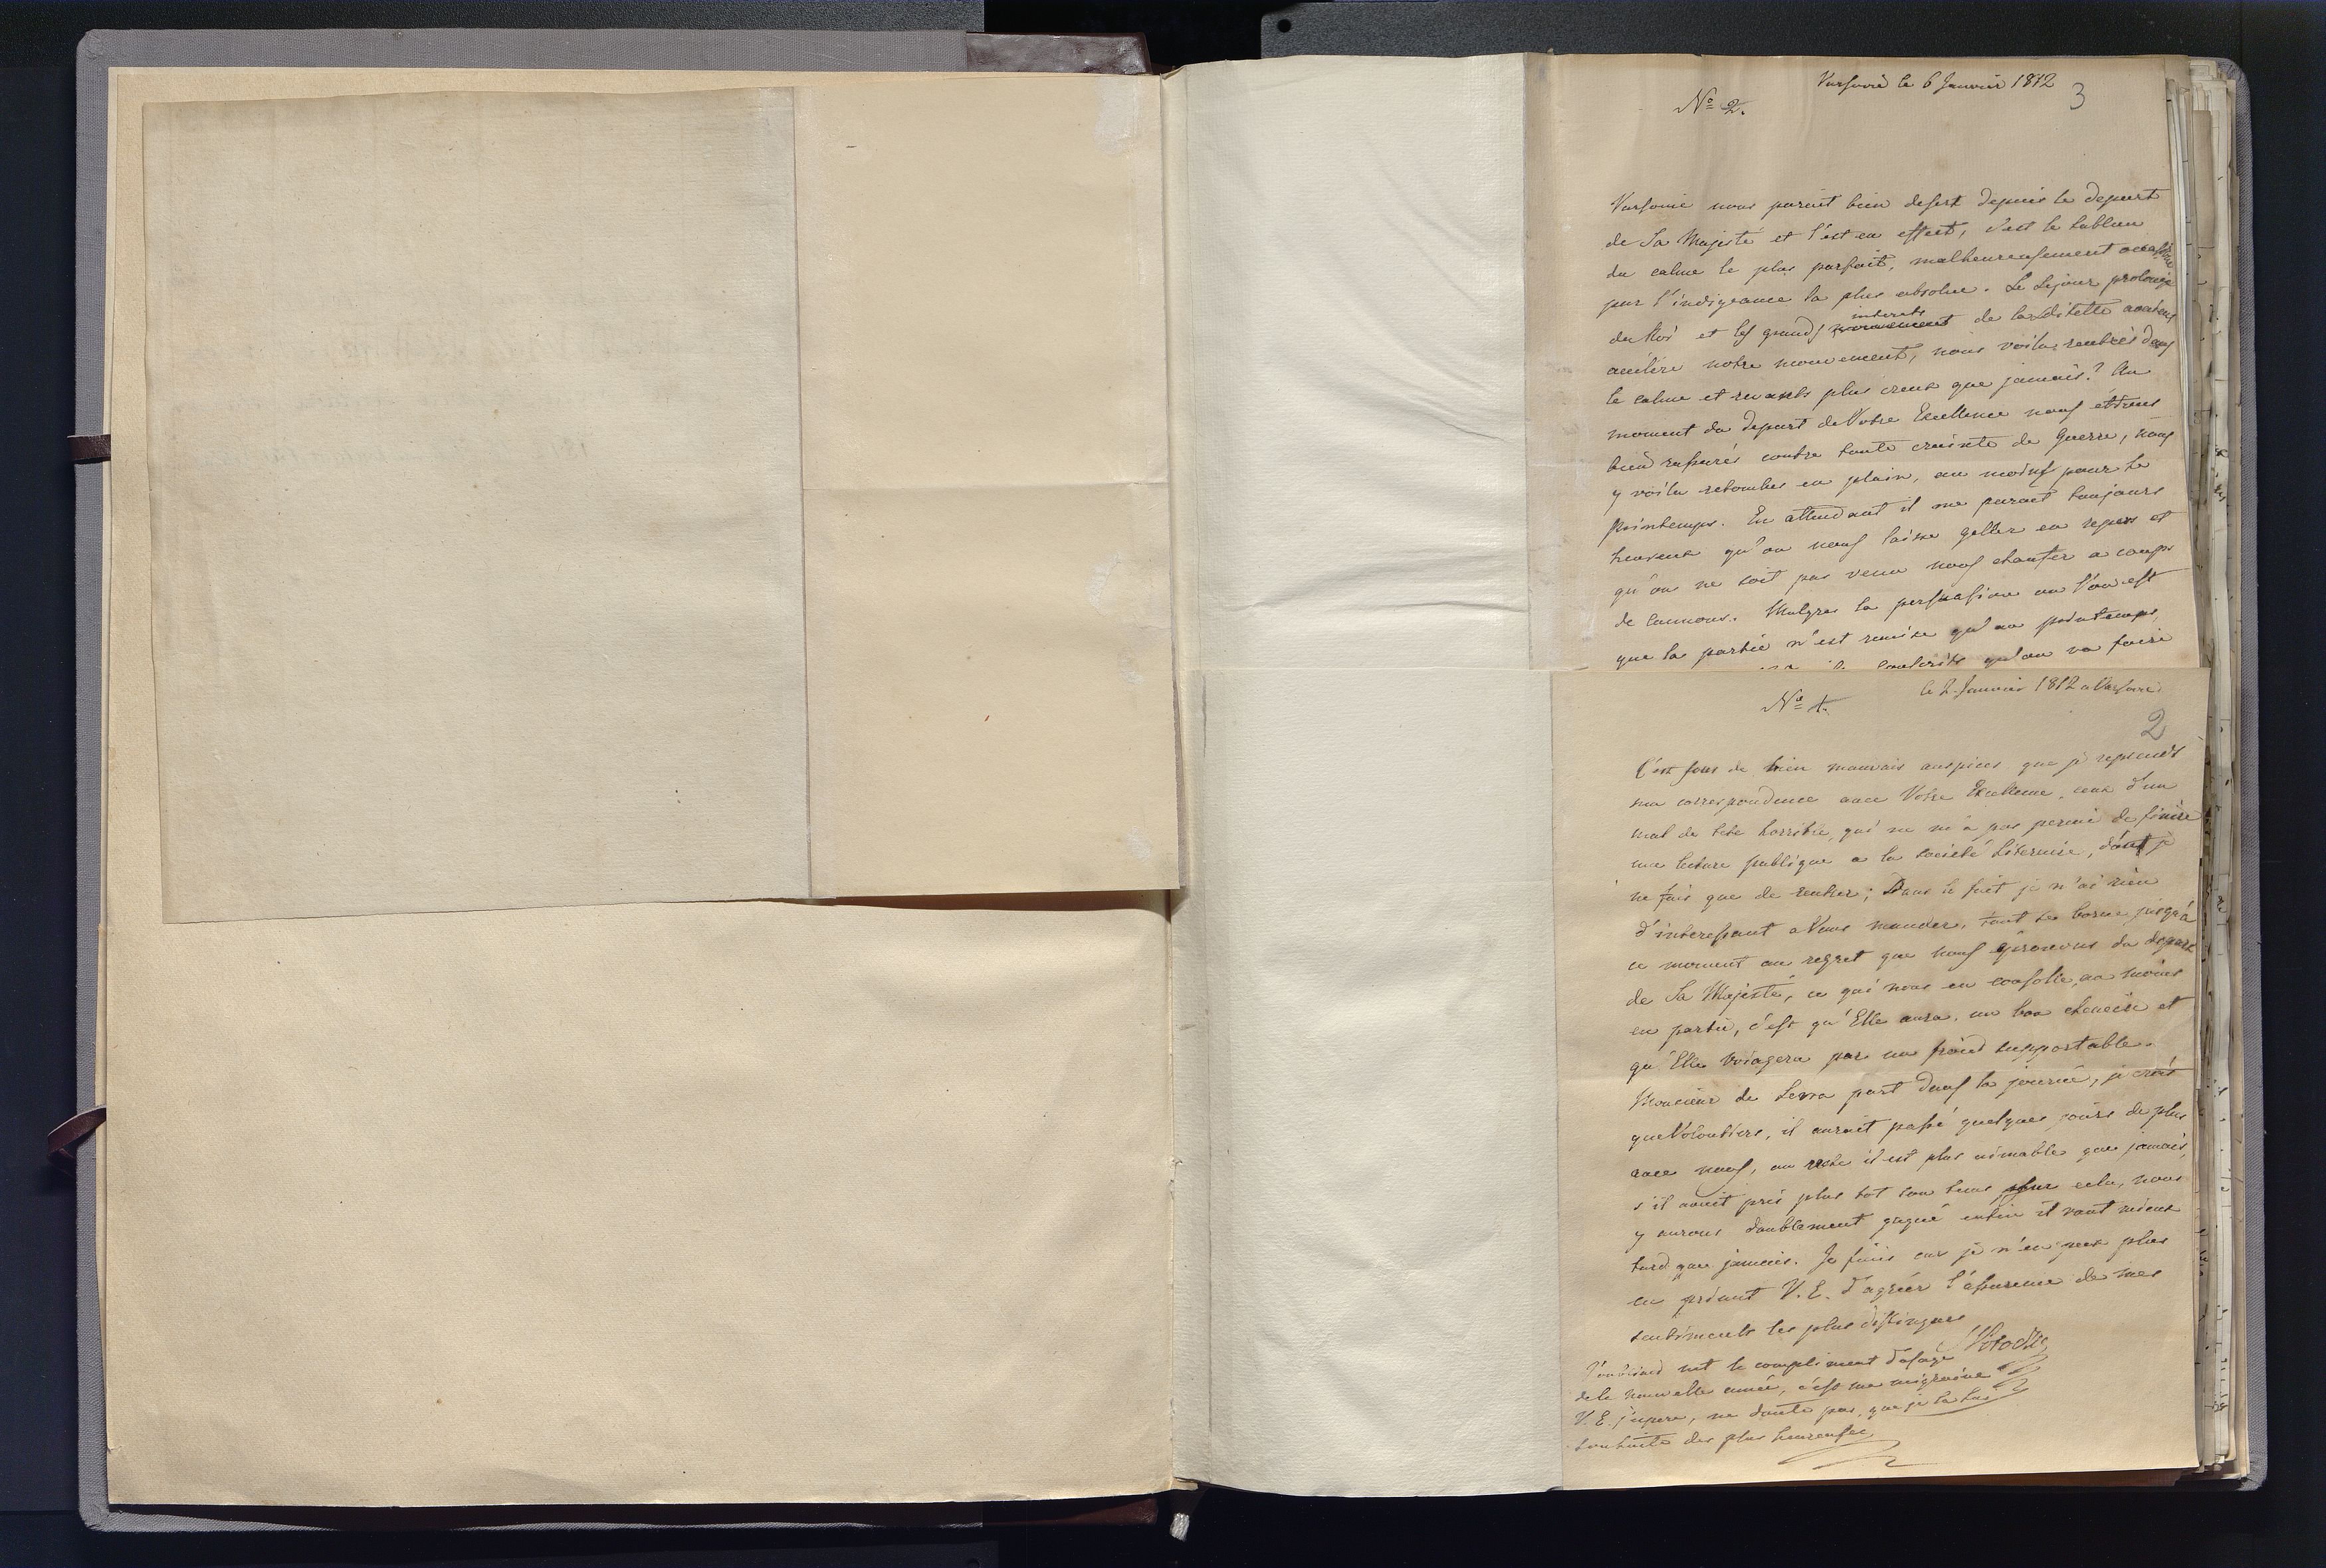 Varsovie le 6 Janvier 1812
3
Nº 2.
Varsovie nous parait bien desert depuis le depart
de Sa Majesté et l'est en effect, c'est le tableau
du calme le plus parfait, malheureusement
par l'indigeance la plus absolue. Le Sejour prolongé
du Roi et les grands interets de la Ditette
notre mouvement, nous voila rentrés dans
le calme et plus creux que jamais? Au
moment du depart de Votre Excellence nous etions
bien rassurés contre toute crainte de Guerre, nous
y voila retombés en plain, au moins pour le
printemps. En attendant il me parait toujours
heureux qu'on nous laisse geller en repos et
qu'on ne soit pas venu nous chaufer a coups
de cannons. Malgres la persuasion ou l'on est
que la partie n'est remise qu'au printemps,
qu'on va faire
Nº 1.
le 2 Janvier 1812 a Varsovie
2
C'est sous de bien mauvais auspices que je reprends
ma correspondence avec Votre Excellence, ceux d'un
mal de tete horrible, qui ne m'a pas permi de finire
ma lecture publique a la Societé Literaire, dont je
ne fais que de rentrer; Dans le fait je n'ai rien
d'interessant a Vous mander, tout se borne jusqu'à
ce moment au regret que nous eprouvons du depart
de Sa Majesté, ce qui nous en console, au moins
en partie, c'est qu'Elle aura un bon chemin et
qu'Elle voiagera par un froid supportable.
Monsieur de Serra part dans la journé, je croit
que Volontiers, il aurait passé quelques jours de plus
avec nous, au reste il est plus aimable que jamais,
s'il avait pris plus tot son tems sur cela, nous
y aurons doublement gagné enfin il vaut mieux
tard que jamais. Je finis car je n'en peux plus
en priant V. E. d'agréer l'assurence de mes
sentiments les plus distingues
J'oubliais net le compliment d'usage
de la nouvelle année, c'est ma migraine
V. E. j'espere, ne doute pas, que je la lui
souhaite des plus heureuses